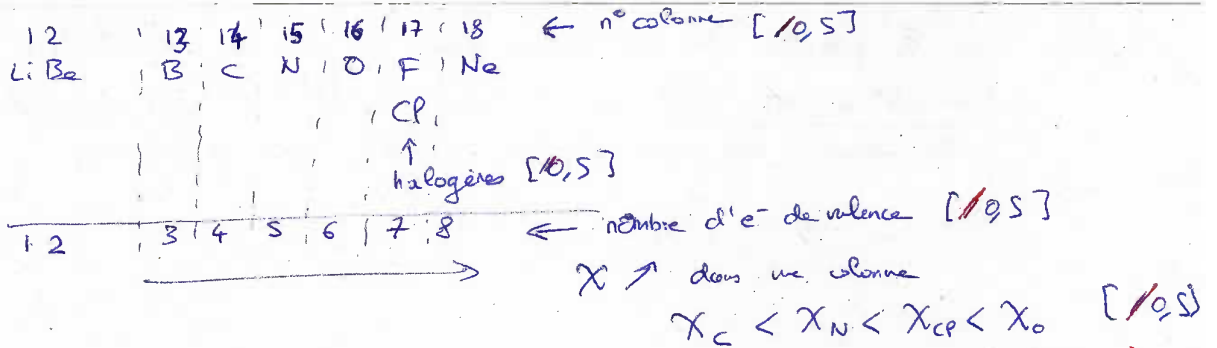 1 2 13 14 15 16 17 18 ← n° colonne [/0,5]
Li Be B C N O F Ne
Cl
↑
halogènes [/0,5]
1 2 3 4 5 6 7 8 ← nombre d'e⁻ de valence [/0,5]
χ ↗ dans une colonne
χ_C < χ_N < χ_Cl < χ_O [/0,5]